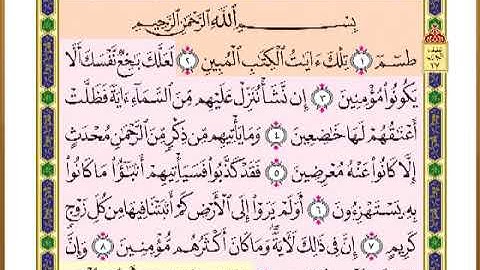 بِسْمِ ٱللَّهِ ٱلرَّحْمَٰنِ ٱلرَّحِيمِ
طسٓمٓ ١ تِلْكَ ءَايَٰتُ ٱلْكِتَٰبِ ٱلْمُبِينِ ٢ لَعَلَّكَ بَٰخِعٌ نَّفْسَكَ أَلَّا
يَكُونُوا۟ مُؤْمِنِينَ ٣ إِن نَّشَأْ نُنَزِّلْ عَلَيْهِم مِّنَ ٱلسَّمَآءِ ءَايَةً فَظَلَّتْ
أَعْنَٰقُهُمْ لَهَا خَٰضِعِينَ ٤ وَمَا يَأْتِيهِم مِّن ذِكْرٍ مِّنَ ٱلرَّحْمَٰنِ مُحْدَثٍ
إِلَّا كَانُوا۟ عَنْهُ مُعْرِضِينَ ٥ فَقَدْ كَذَّبُوا۟ فَسَيَأْتِيهِمْ أَنۢبَٰٓؤُا۟ مَا كَانُوا۟
بِهِۦ يَسْتَهْزِءُونَ ٦ أَوَلَمْ يَرَوْا۟ إِلَى ٱلْأَرْضِ كَمْ أَنۢبَتْنَا فِيهَا مِن كُلِّ زَوْجٍ
كَرِيمٍ ٧ إِنَّ فِى ذَٰلِكَ لَءَايَةً وَمَا كَانَ أَكْثَرُهُم مُّؤْمِنِينَ ٨ وَإِنَّ